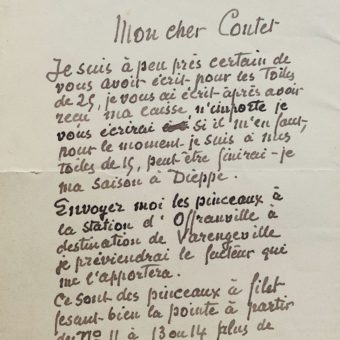 Mon cher Contet
Je suis à peu près certain de
vous avoir écrit pour les Toiles
de 25, je vous ai écrit après avoir
reçu ma caisse n'importe je
vous écrirai si il m'en faut,
pour le moment je suis à mes
toiles de 15, peut-être finirai-je
ma saison à Dieppe.
Envoyer moi les pinceaux à
la station d'Offranville à
destination de Varengeville
je préviendrai le facteur qui
me l'apportera.
Ce sont des pinceaux à filet
fesant-bien la pointe à partir
du No 11 à 13 ou 14 plus de